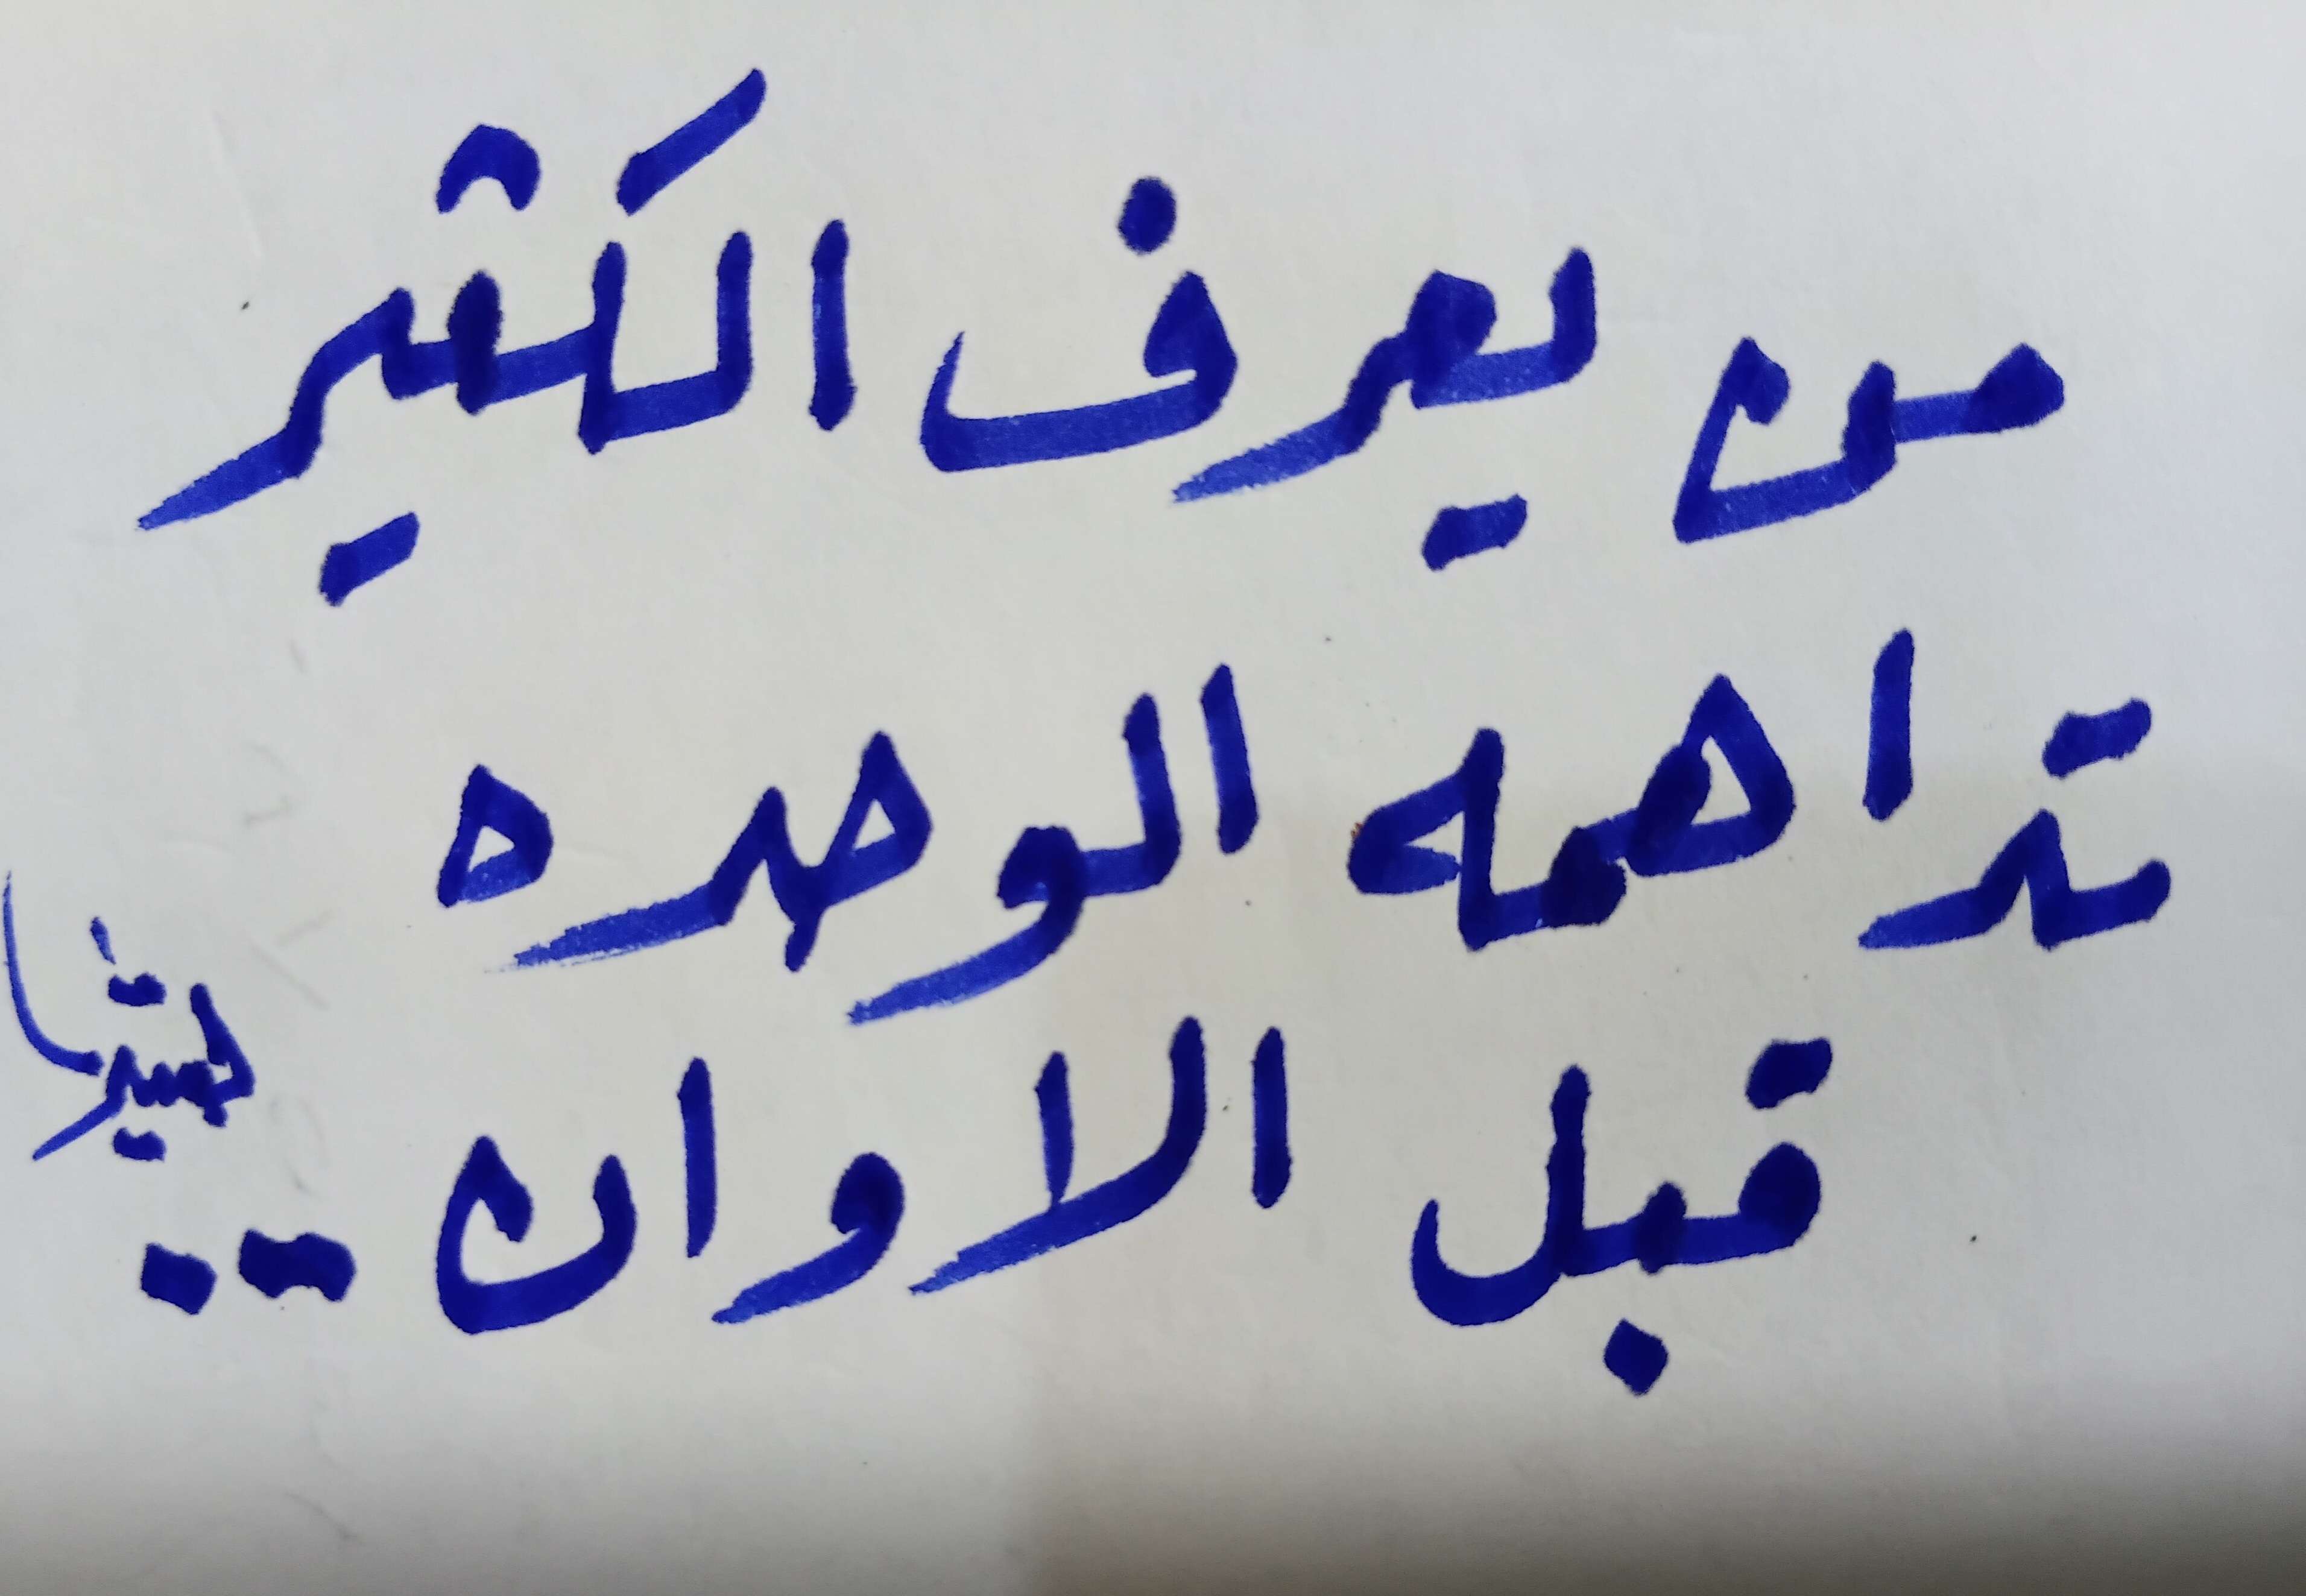 من يعرف الكثير
تداهمه الوحده
قبل الاوان ..